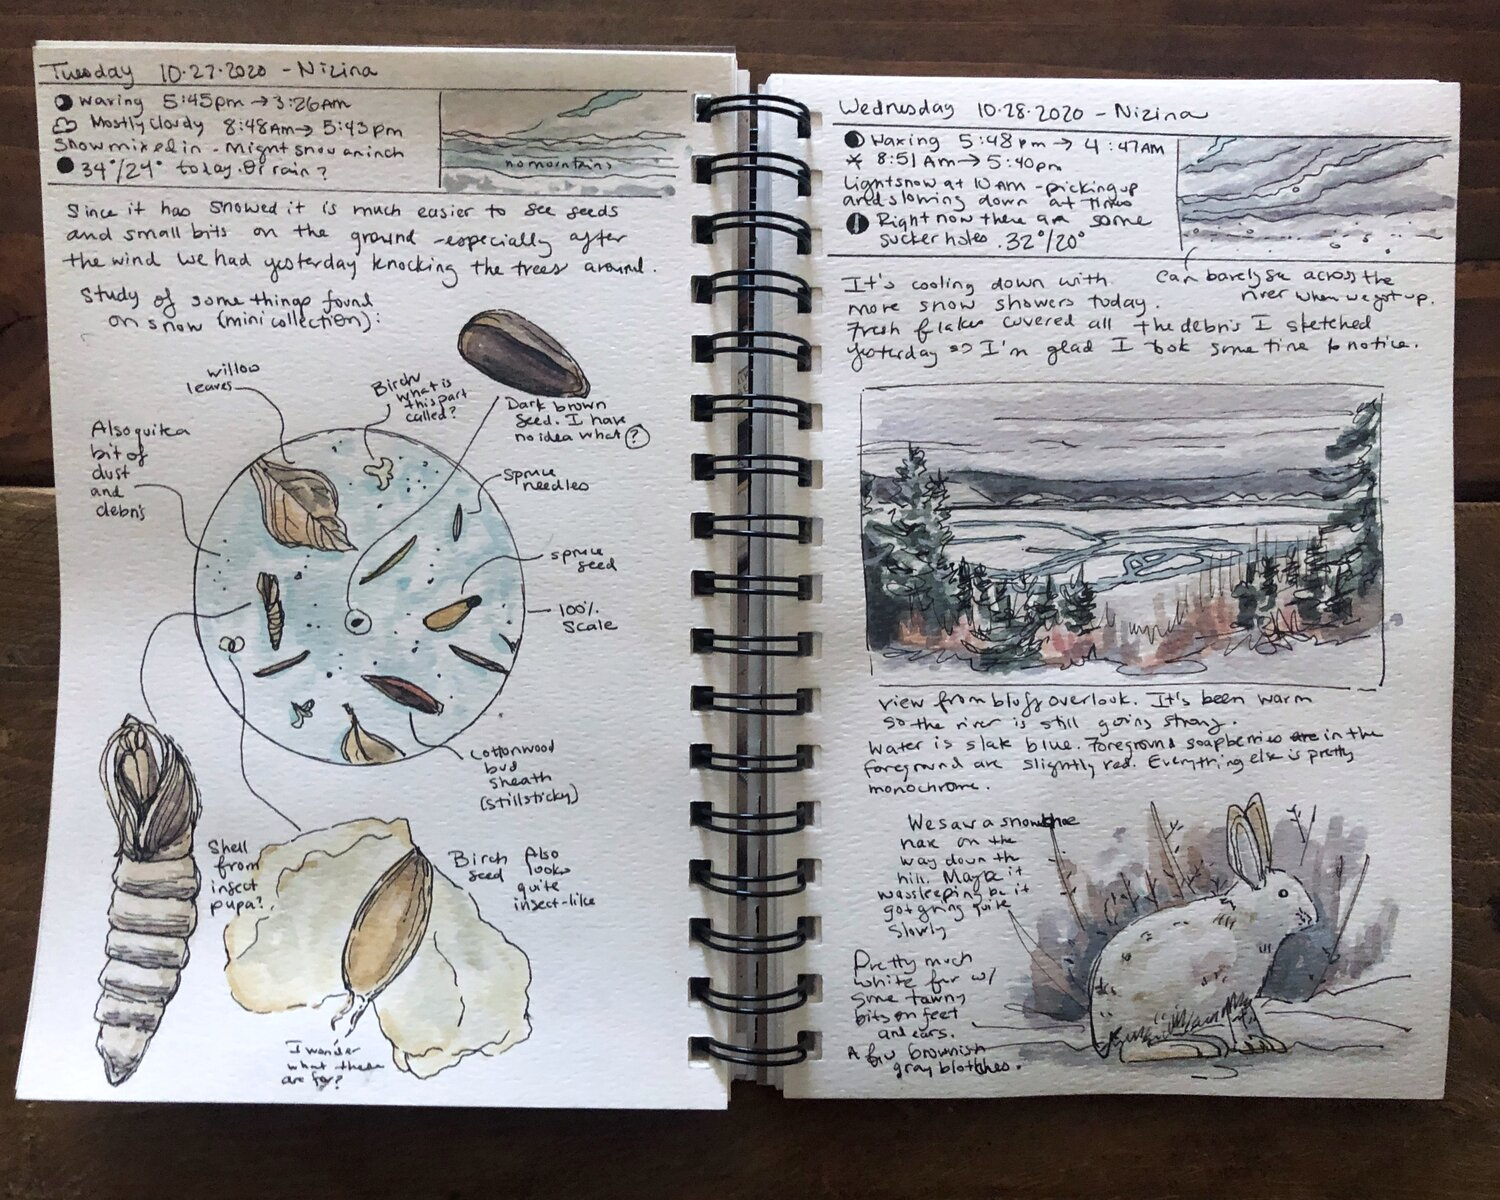 Tuesday 10.27.2020 - Nizina
Waxing 5:45pm → 3:26AM
Mostly cloudy 8:48AM → 5:43pm
Snow mixed in - Might snow an inch
34°/24° today. Or rain?
no mountains
Since it has snowed it is much easier to see seeds
and small bits on the ground - especially after
the wind we had yesterday knocking the trees around.
Study of some things found
on snow (mini collection):
willow
leaves
Birch
what is
this part
called?
Dark brown
seed. I have
no idea what ?
Also quite a
bit of
dust
and
debris
Spruce
needles
spruce
seed
100%
Scale
Cottonwood
bud
sheath
(still sticky)
Shell
from
insect
pupa?
Birch
seed
Also
looks
quite
insect-like
I wonder
what these
are for?
Wednesday 10.28.2020 - Nizina
Waxing 5:48pm → 4:47AM
8:51AM → 5:40pm
Light snow at 10 AM - picking up
and slowing down at times
Right now there are some
sucker holes. 32°/20°
Can barely see across the
river when we got up.
It's cooling down with
more snow showers today.
Fresh flakes covered all the debris I sketched
yesterday so I'm glad I took some time to notice.
view from bluff overlook. It's been warm
so the river is still going strong.
Water is slate blue. Foreground soapberries are in the
foreground are slightly red. Everything else is pretty
monochrome.
We saw a snowshoe
hare on the
way down the
hill. Maybe it
was sleeping bc it
got going quite
slowly
Pretty much
white fur w/
some tawny
bits on feet
and ears.
A few brownish
gray blotches.